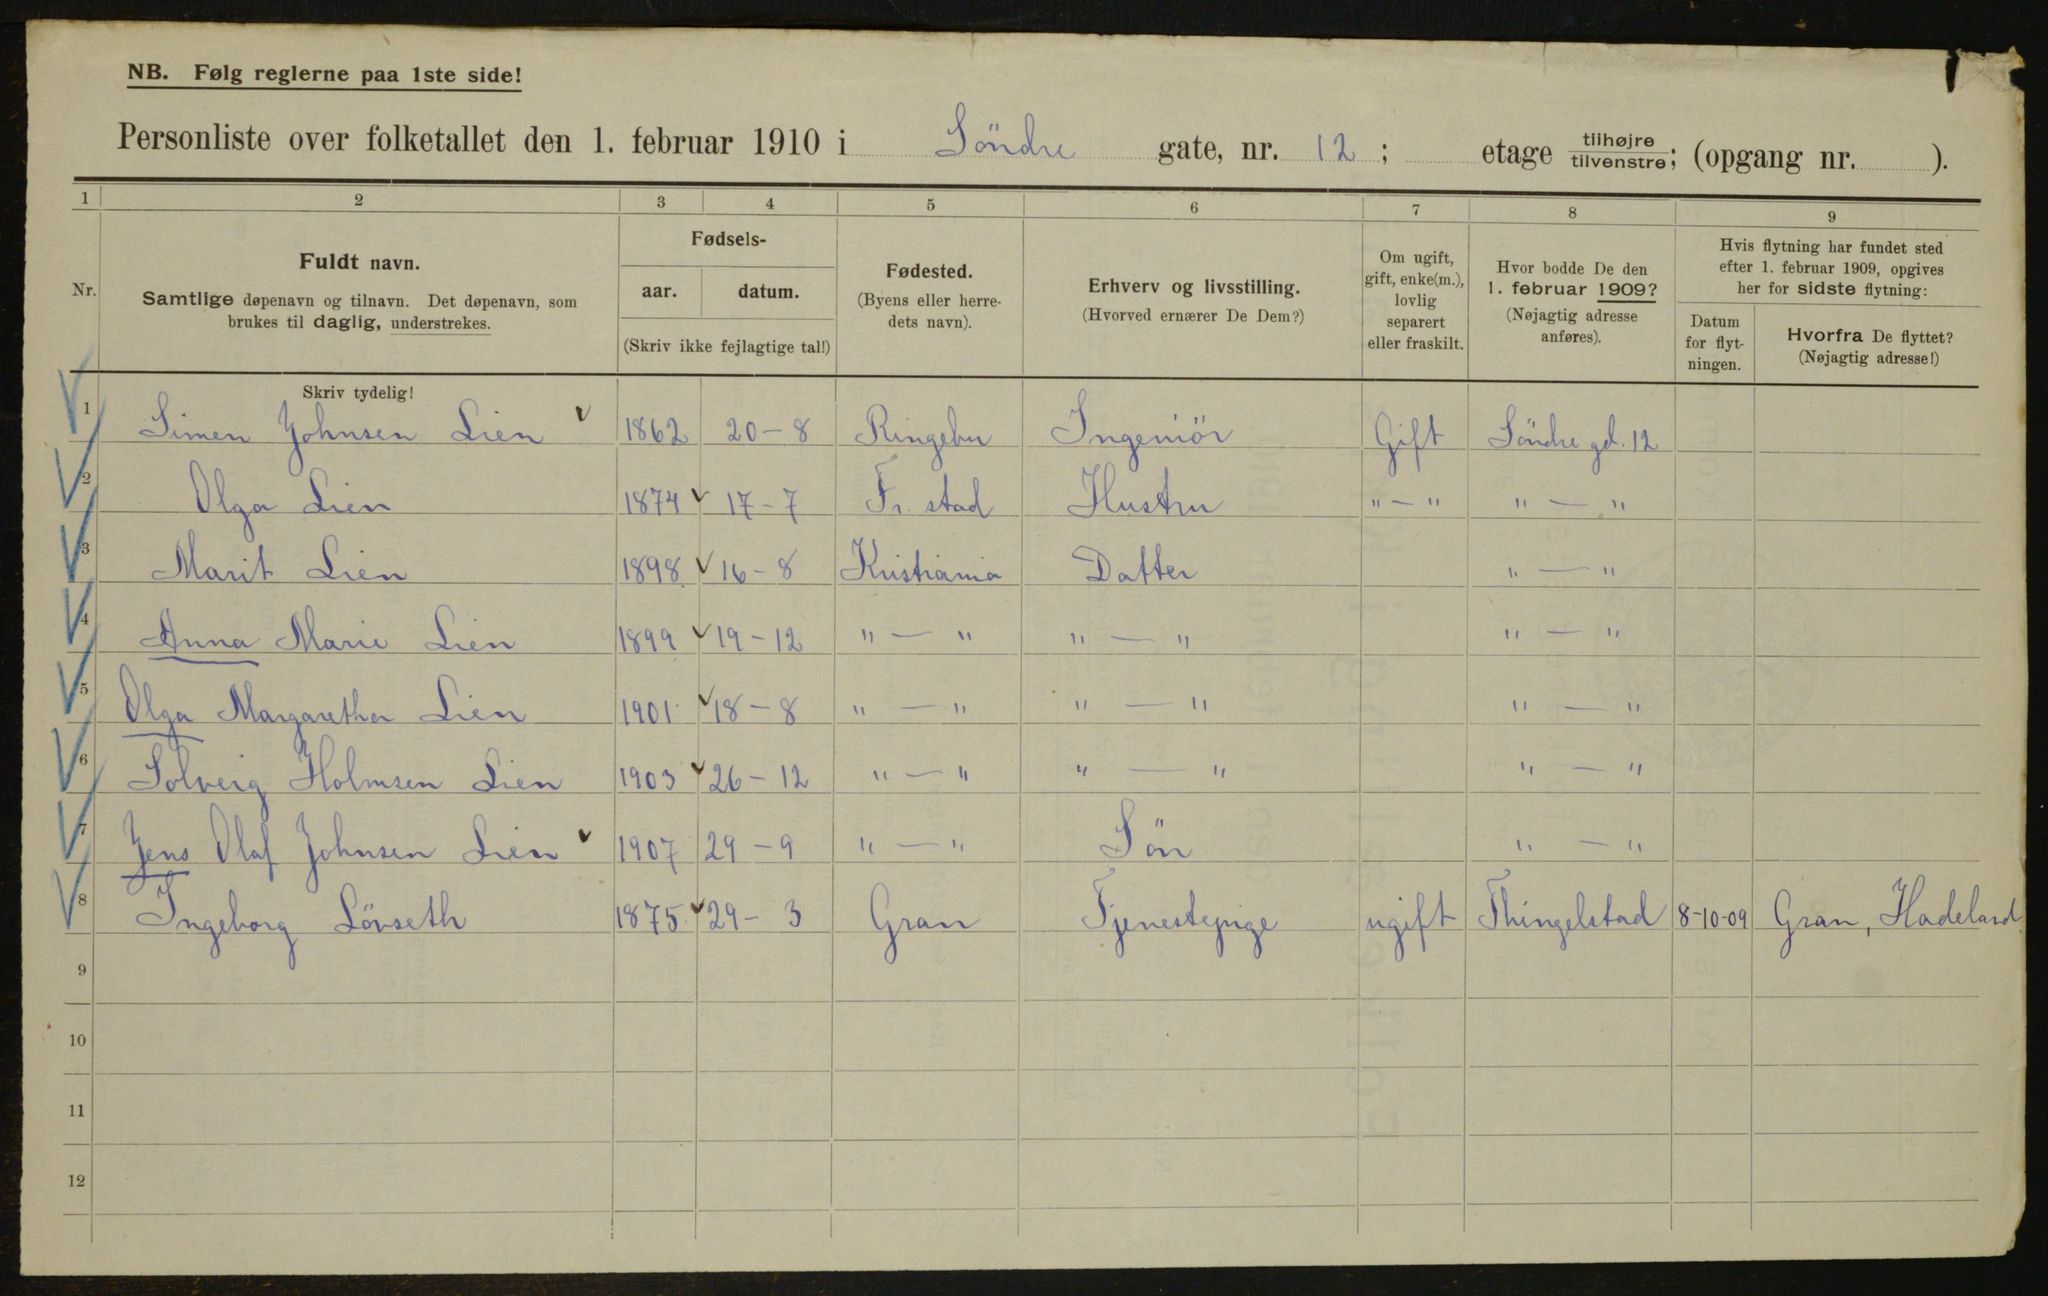 NB. Følg reglerne paa 1ste side!
Personliste over folketallet den 1. februar 1910 i Söndre gate, nr. 12 ; etage tilhøjre tilvenstre; (opgang nr. ).
1 2 3 4 5 6 7 8 9
Nr.
Fuldt navn.
Samtlige døpenavn og tilnavn. Det døpenavn, som
brukes til daglig, understrekes.
Fødsels-
aar. datum.
(Skriv ikke fejlagtige tal!)
Fødested.
(Byens eller herre-
dets navn).
Erhverv og livsstilling.
(Hvorved ernærer De Dem?)
Om ugift,
gift, enke(m.),
lovlig
separert
eller fraskilt.
Hvor bodde De den
1. februar 1909?
(Nøjagtig adresse
anføres).
Hvis flytning har fundet sted
efter 1. februar 1909, opgives
her for sidste flytning:
Datum
for flyt-
ningen.
Hvorfra De flyttet?
(Nøjagtig adresse!)
Skriv tydelig!
1 Simen Johnsen Lien 1862 20-8 Ringebu Ingeniör Gift Söndre gd. 12
2 Olga Lien 1874 17-7 Fr. stad Hustru " — " " — "
3 Marit Lien 1898 16-8 Kristiania Datter " — "
4 Anna Marie Lien 1899 19-12 " — " " — " " — "
5 Olga Margaretha Lien 1901 18-8 " — " " — " " — "
6 Solveig Holmsen Lien 1903 26-12 " — " " — " " — "
7 Jens Olaf Johnsen Lien 1907 29-9 " — " Sön " — "
8 Ingeborg Lövseth 1875 29-3 Gran Tjenestepige ugift Thingelstad 8-10-09 Gran, Hadeland
9
10
11
12